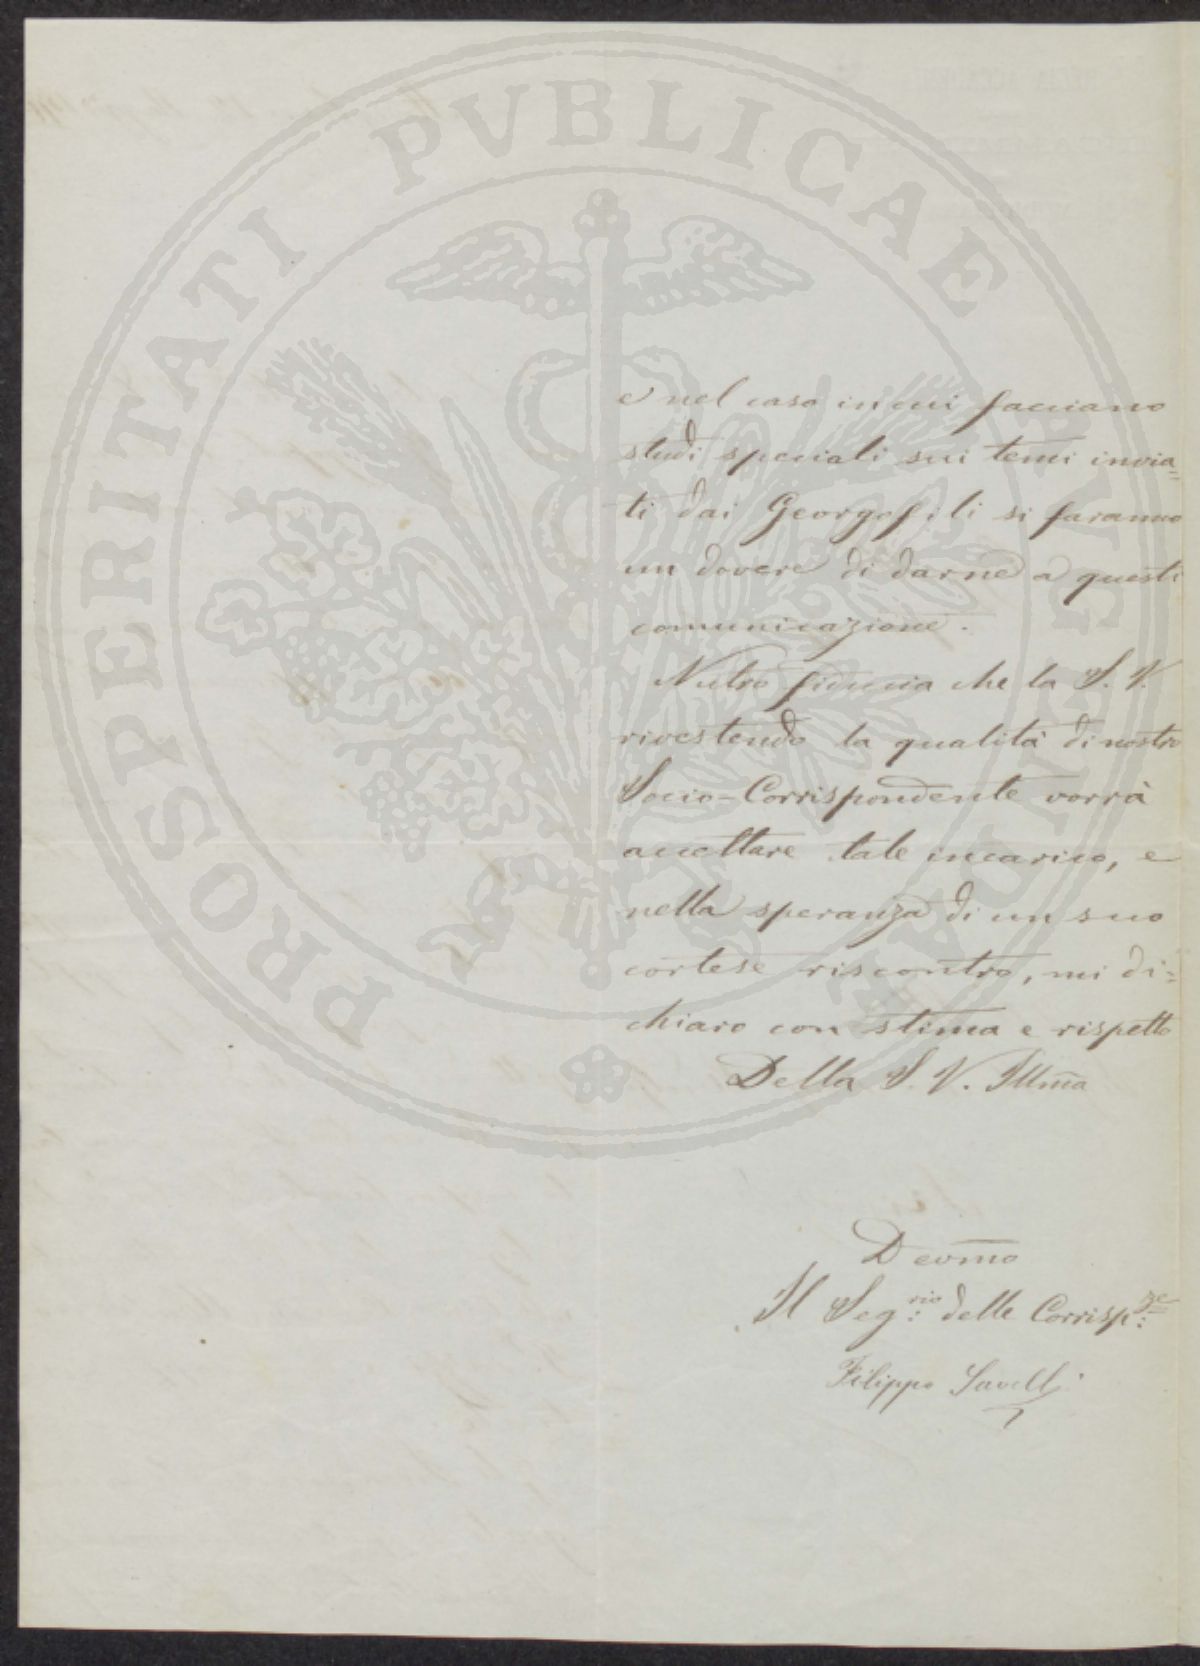 e nel caso in cui facciano
studi speciali sui temi invia=
ti dai Georgofili si faranno
un dovere di darne a questi
comunicazione.
Nutro fiducia che la S. V.
rivestendo la qualità di nostro
Socio-Corrispondente vorrà
accettare tale incarico, e
nella speranza di un suo
cortese riscontro, mi di=
chiaro con stima e rispetto
Della S. V. Illma
Devmo
Il Seg:rio delle Corrisp:ze
Filippo Savelli
PROSPERITATI PVBLICAE AVGENDAE